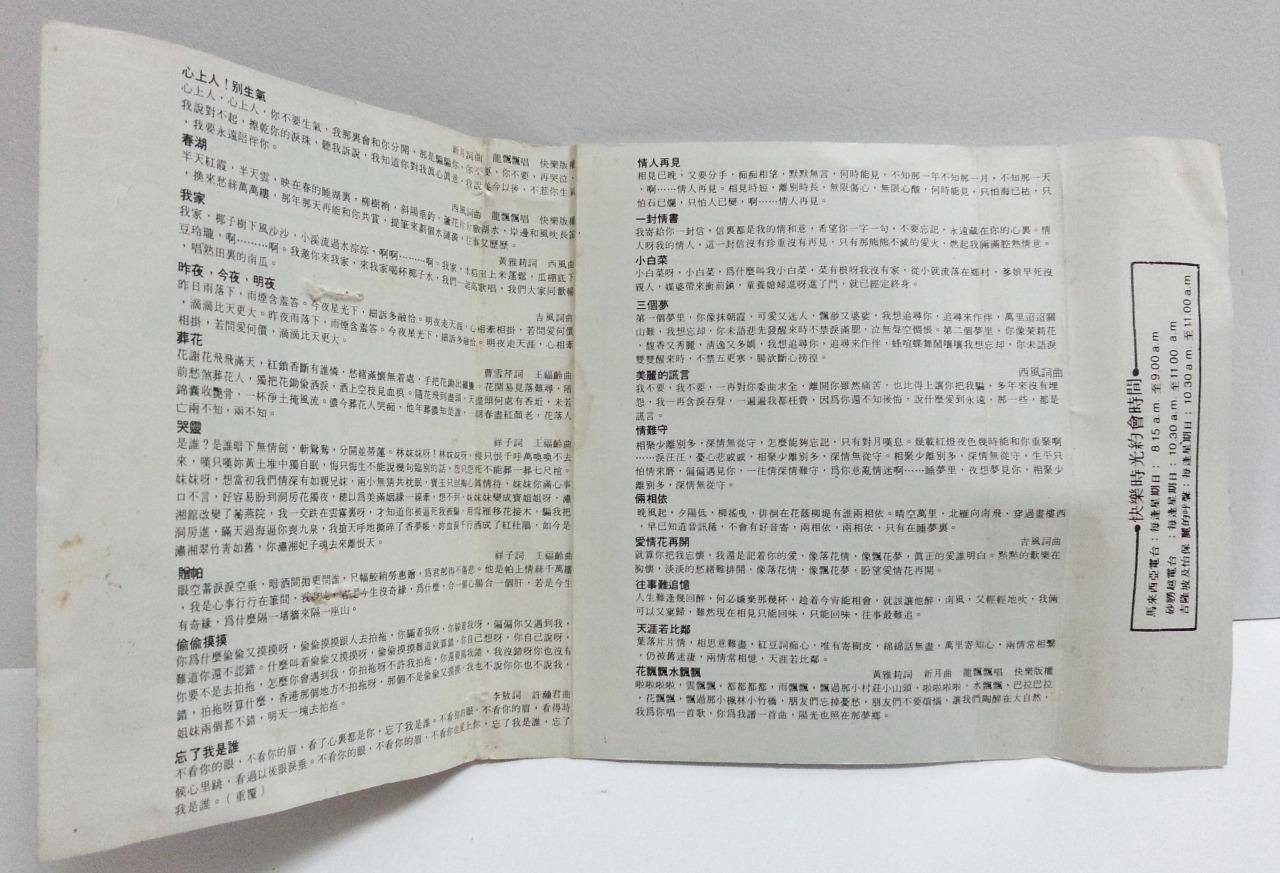 心上人！別生氣
新月詞曲　龍飄飄唱　快樂版權
心上人，心上人，你不要生氣，我那裏會和你分開，那是騙騙你，你不要，你不要，再哭泣，
我說對不起，擦乾你的淚珠，聽我訴說，我知道你對我眞心眞意，我說從今以後，不惹你生氣
，我要永遠陪伴你。
春湖
西風詞曲　龍飄飄唱　快樂版權
半天紅霞，半天雲，映在春的睡湖裏，柳樹梢，斜陽垂釣，蘆花片片 湖水，岸邊和風吹長笛
，換來愁絲萬萬縷，那年那天再能和你共賞，提筆來劃個水漣漪，往事又歷歷。
我家
黃雅莉詞　西風曲
我家，椰子樹下風沙沙，小溪流過水淙淙，啊啊………啊。我家，水稻田上米蓬鬆，瓜棚底下
豆玲瓏，啊………啊。我邀你來我家，來我家喝杯椰子水，我們一起高歌唱，我們大家同歡暢
，唱熟田裏的南瓜。
昨夜，今夜，明夜
古風詞曲
昨日雨落下，雨煙含羞答。今夜星光下，細訴多融恰。明夜走天涯，心相牽相掛，若問愛何價
，滴滴比天更大。昨夜雨落下，雨煙含羞答。今夜星光下，細訴多融恰。明夜走天涯，心相牽
相掛，若問愛何價，滴滴比天更大。
葬花
曹雪芹詞　王福齡曲
花謝花飛飛滿天，紅銷香斷有誰憐，愁緒滿懷無着處，手把花鋤出繡簾。花開易見落難尋，階
前愁煞葬花人，獨把花鋤偷洒淚，洒上空枝見血痕。隨花飛到盡頭，天盡頭何處有香坵，未若
錦囊收艷骨，一杯淨土掩風流。儂今葬花人笑痴，他年葬儂知是誰，一朝春盡紅顏老，花落人
亡兩不知，兩不知。
哭靈
祥子詞　王福齡曲
是誰？是誰暗下無情劍，斬鴛鴦，分開並蒂蓮。林妹妹呀！林妹妹呀，我只恨千呼萬喚喚不去
來，嘆只嘆妳黃土堆中獨自眠，悔只悔生不能說幾句臨別的話，怨只怨死不能葬一葬七尺棺。
妹妹呀，想當初我們情深有如親兄妹，兩小無猜共枕眠，寶玉只討 眞情待，妹妹你滿心事
口不言，好容易盼到洞房花獨夜，總以爲美滿姻緣一線牽，想不到，妹妹妹變成寶姐姐呀，瀟
湘館改變了蘅蕪院，我一交跌在雲霧裏呀，才知道你被逼死我被騙，用雪雁移花接木，騙我把
洞房進，瞞天過海逼你喪九泉，我搶天呼地撕碎了香夢帳，妳血淚千行洒成了紅杜鵑，如今是
瀟湘翠竹靑如舊，你瀟湘妃子魂去來離恨天。
贈帕
祥子詞　王福齡曲
眼空蓄淚淚空垂，暗洒閒拋更問誰，尺幅鮫綃勞惠贈，爲君那得不傷悲。他是帕上情絲千萬縷
，我是心事行行在筆間， 今生沒奇緣，爲什麼，合一個心腸合一個肝，若是今生
有奇緣，爲什麼隔一堵牆來隔一座山。
偷偷摸摸
你爲什麼偷偷又摸摸呀，偷偷摸摸跟人去拍拖，你瞞着我呀，你躱着我呀，偏偏你又遇到我，
難道你還不認錯。什麼叫着偷偷又摸摸呀，偷偷摸摸難道就算錯，你自己想呀，你自己說呀，
你要不是去拍拖，怎麼你會遇到我，你拍拖呀不許我拍拖，你還要罵我錯，我沒錯呀你也沒有
錯，拍拖呀算什麼，香港那個地方不拍拖呀，那個不是偷偷又摸摸，我也不說你你也不說我，
姐妹兩個都不錯，明天一塊去拍拖。
忘了我是誰
李敖詞　許瀚君曲
不看你的眼，不看你的眉，看了心裏都是你，忘了我是誰。不看你的眼，不看你的眉，看得時
候心里跳，看過以後眼淚垂。不看你的眼，不看你的眉，不看你也愛上你，忘了我是誰，忘了
我是誰。（重覆）
情人再見
相見已晚，又要分手，痴痴相望，默默無言，何時能見，不知那一年不知那一月，不知那一天
，啊……情人再見。相見時短，離別時長，無限傷心，無限心酸，何時能見，只怕海已枯，只
怕石已爛，只怕人已變，啊……情人再見。
一封情書
我寄給你一封信，信裏都是我的情和意，希望你一字一句，不要忘記，永遠藏在你的心裏。情
人呀我的情人，這一封信沒有珍重沒有再見，只有那熊熊不滅的愛火，燃起我倆滿腔熱情意。
小白菜
小白菜呀，小白菜，爲什麼叫我小白菜，菜有根呀我沒有家，從小就流落在鄉村，爹娘早死沒
親人，媒婆帶來衝前鎮，童養媳婦進呀進了門，就已經定終身。
三個夢
第一個夢里，你像抹朝霞，可愛又迷人，飄渺又婆娑，我想追尋你，追尋來作伴，萬里迢迢關
山難，我想忘却，你未語悲先發醒來時不禁淚滿腮，泣無聲空惆悵。第二個夢里，你像茉莉花
，馥香又秀麗，清逸又多嬌，我想追尋你，追尋來作伴，蜂喧蝶舞鬧嚷嚷我想忘却，你未語淚
雙雙醒來時，不禁五更寒，腸欲斷心徬徨。
美麗的謊言
西風詞曲
我不要，我不要，一再對你委曲求全，離開你雖然痛苦，也比得上讓你把我騙，多年來沒有埋
怨，我一再含淚吞聲，一遍遍我都枉費，因爲你還不知後悔，說什麼愛到永遠，那一些，都是
謊言。
情難守
相聚少離別多，深情無從守，怎麼能夠忘記，只有對月嘆息。幾載紅燈夜色幾時能和你重聚啊
……淚汪汪，憂心悲戚戚，相聚少離別多，深情無從守。相聚少離別多，深情無從守，生平只
怕情來磨，偏偏遇見你，一往情深情難守，爲你意亂情迷啊……睡夢里，夜想夢見你，相聚少
離別多，深情無從守。
倆相依
晚風起，夕陽低，柳搖曳，徘徊在花蔭柳堤有誰兩相依。晴空萬里，北雁向南飛，穿過畫樓西
，早已知道音訊稀，不會有好音寄，兩相依，兩相依，只有在睡夢裏。
愛情花再開
古風詞曲
就算你把我忘懷，我還是記着你的愛，像落花情，像飄花夢，眞正的愛誰明白。點點的歡樂在
胸懷，淡淡的愁緒難排開，像落花情，像飄花夢，盼望愛情花再開。
往事難追憶
人生難逢幾回醉，何必嫌棄那幾杯，趁着今宵能相會，就該讓他醉，南風，又輕輕地吹，我倆
可以又棄歸，雖然現在相見只能回味，只能回味，往事最難追。
天涯若比鄰
葉落片片情，相思意難盡，紅豆詞痴心，唯有寄樹皮，綿綿話無盡，萬里寄知心，兩情常相繫
，仍被舊迷凄，兩情常相憶，天涯若比鄰。
花飄飄水飄飄
黃雅莉詞　新月曲　龍飄飄唱　快樂版權
啦啦啦啦，雲飄飄，都都都都，雨飄飄，飄過那小村莊小山頭，啦啦啦啦，水飄飄，巴拉巴拉
，花飄飄，飄過那小楓林小竹橋，朋友們忘掉憂愁，朋友們不要煩惱，讓我們陶醉在大自然，
我爲你唱一首歌，你爲我譜一首曲，陽光也照在那夢鄉。
快樂時光約會時間
馬來西亞電台：每逢星期日： 8.15 a.m. 至9.00 a.m
砂朥越電台　：每逢星期日：10.30 a.m. 至11.00 a.m
吉隆坡及怡保 麗的呼聲：每逢星期日：10.30 a.m. 至11.00 a.m